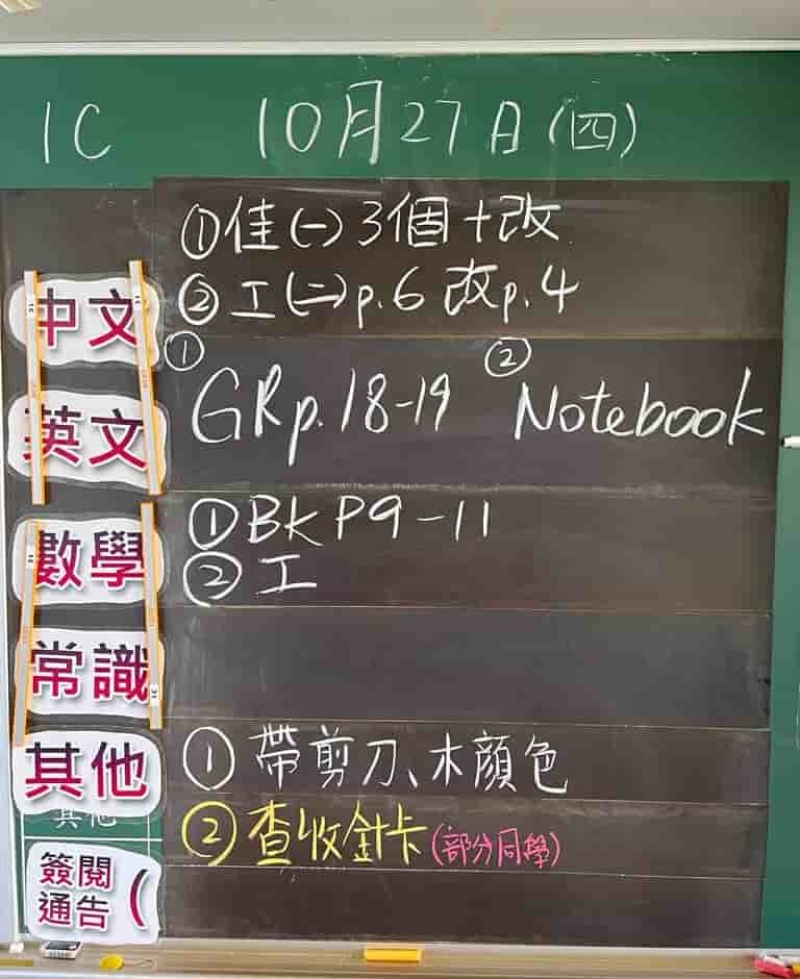 1C 10月27日(四)
①佳(一)3個+改
中文 ②工(二)p.6 改p.4
① ②
英文 GRp.18-19 Notebook
①BK P9-11
數學 ②工
常識
其他 ①帶剪刀、木顏色
其他 ②查收針卡(部分同學)
簽閱
通告 (